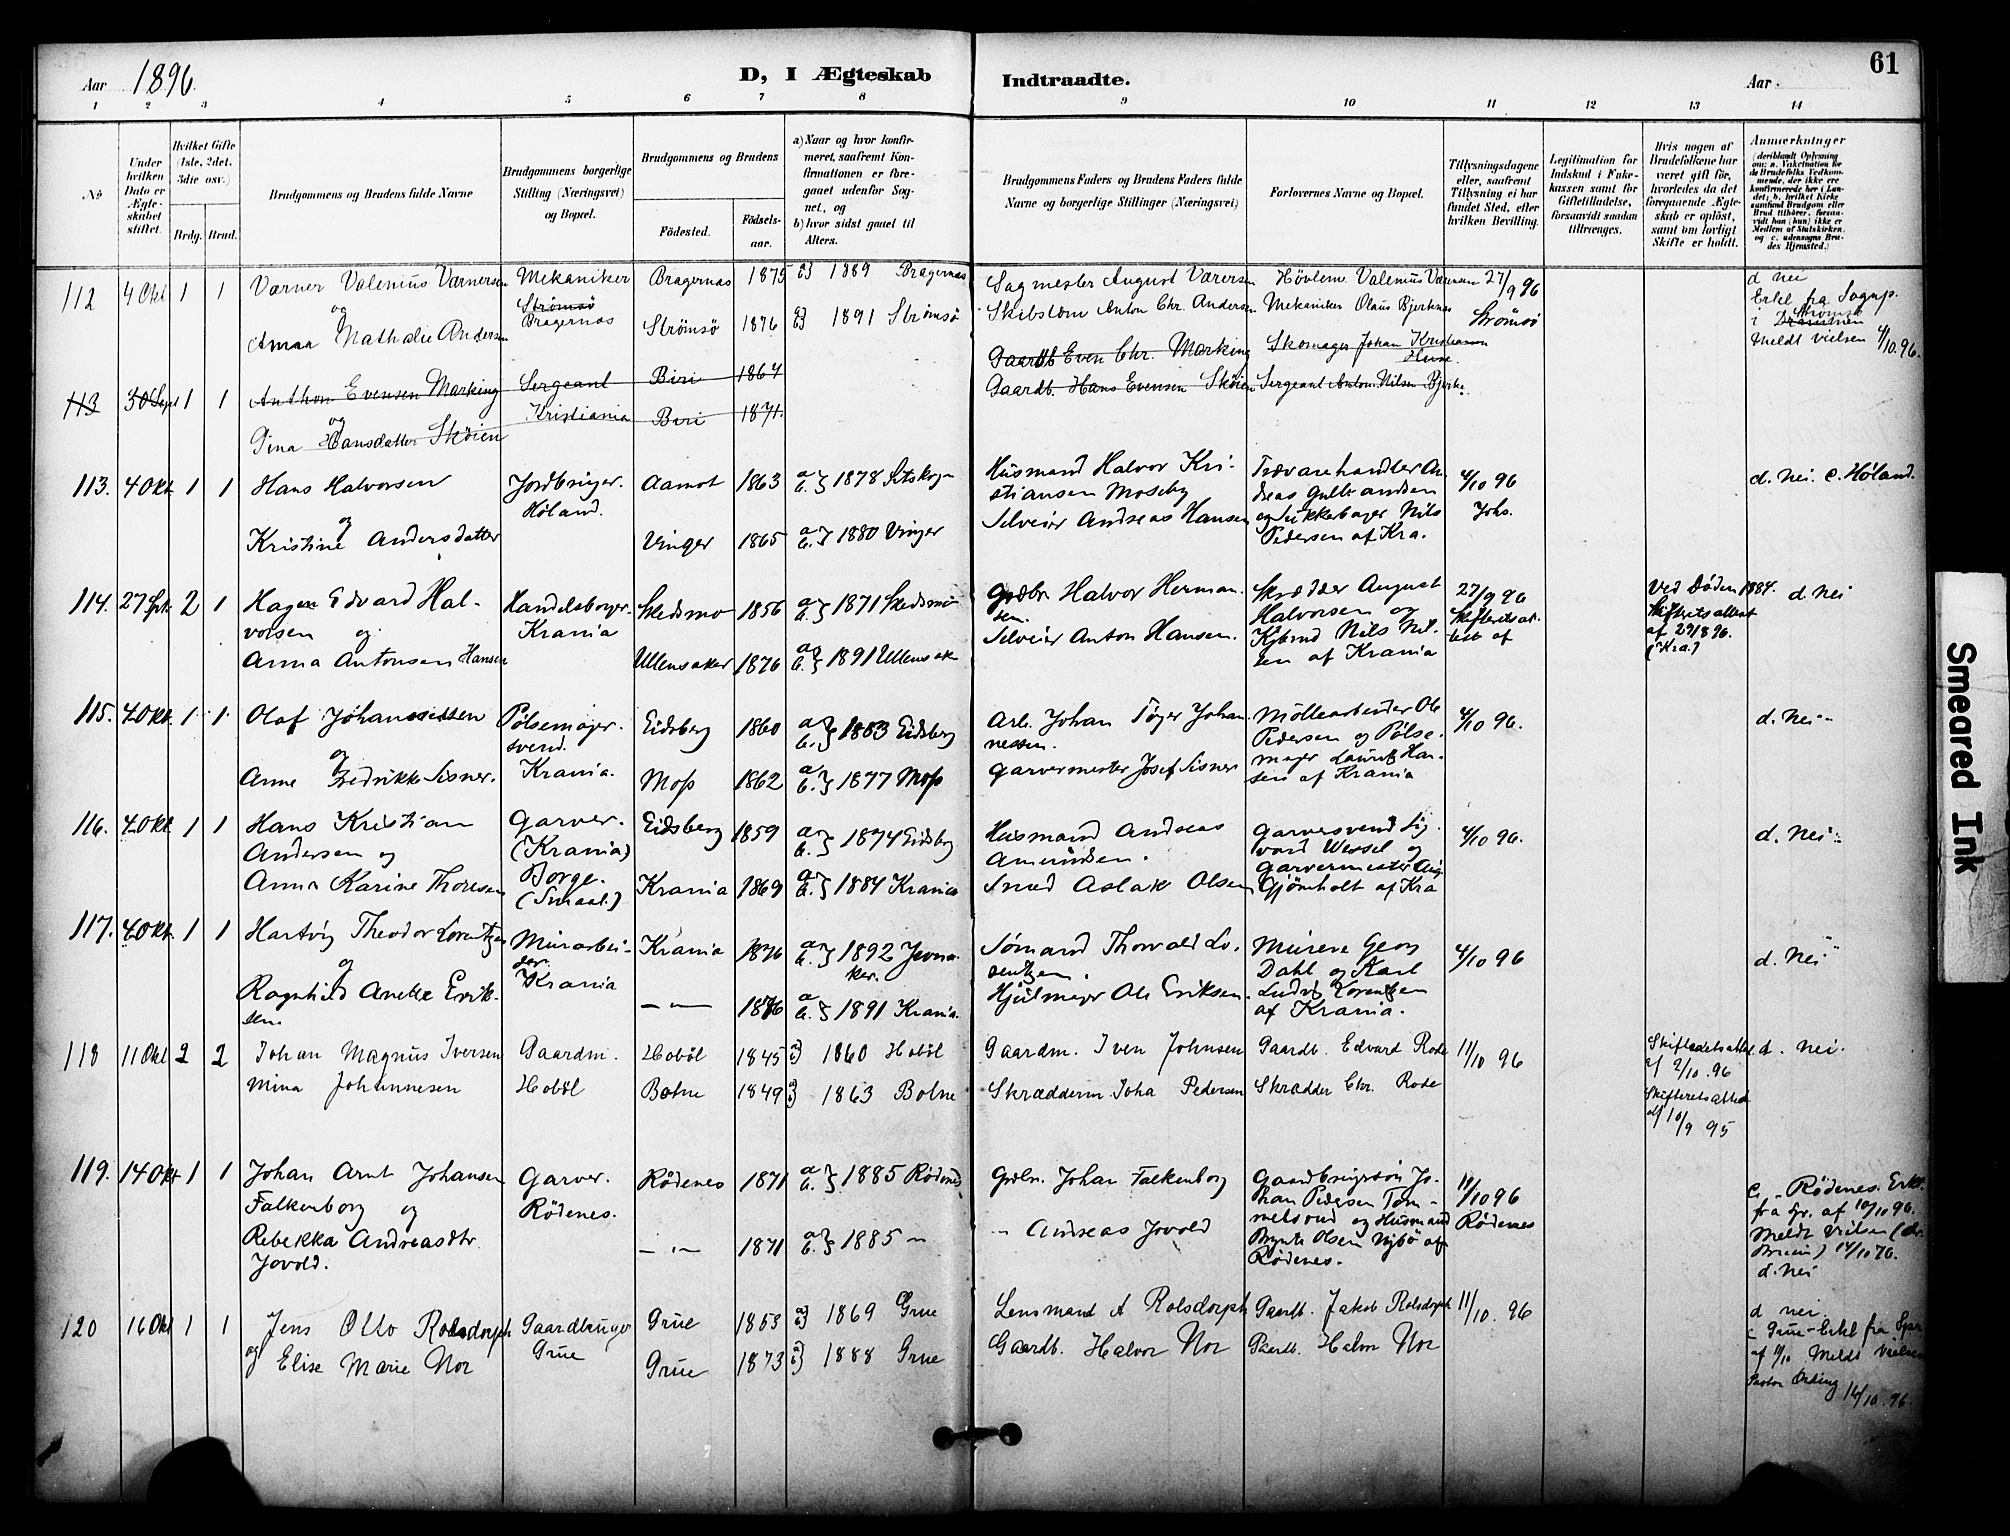 Aar 1896.
D, I Ægteskab Indtraadte.
Aar
61
1 2 3 4 5 6 7 8 9 10 11 12 13 14
No
Under hvilken Dato er Ægteskabet stiftet.
Hvilket Gifte (1ste, 2det, 3die osv.)
Brdg. Brud.
Brudgommens og Brudens fulde Navne
Brudgommens borgerlige Stilling (Næringsvei) og Bopæl.
Brudgommens og Brudens
Födested.
Födselsaar.
a) Naar og hvor konfirmeret, saafremt Konfirmationen er foregaaet udenfor Sognet, og
b) hvor sidst gaaet til Alters.
Brudgommens Faders og Brudens Faders fulde Navne og borgerlige Stillinger (Næringsvei)
Forlovernes Navne og Bopæl.
Tillysningsdagene eller, saafremt Tillysning ei har fundet Sted, efter hvilken Bevilling.
Legitimation for Indskud i Enkekassen samt for Giftetilladelse, forsaavidt saadan tiltrænges.
Hvis nogen af Brudefolkene har været gift för, hvorledes da det foregaaende Ægteskab er oplöst, samt om lovligt Skifte er holdt.
Anmerkninger
(deriblandt Oplysning om: a. Vakcination for de Brudefolks Vedkommende, der ikke ere konfirmerede her i Landet; b. hvilket Kirkesamfund Brudgom eller Brud tilhörer, forsaavidt han (hun) ikke er Medlem af Statskirken, og c. udensogns Brudes Hjemsted.)
112 4 Okt 1 1 Værner Valenius Værnersen Mekaniker Bragernæs 1875 a) b) 1889 Bragernæs Sagmester August Værersen Hövlem Valenius Værnersen 27/9 96 d nei
og Strömsö Bragernæs Erkl fra Sognp.
Anna Nathalie Andersen Strömsö 1876 a) b) 1891 Strömsö Skibstöm Anton Chr. Andersen Mekaniker Olaus Bjerknæs Strömsö i Drammen Strömsö
Meldt vielsen 4/10.96.
113 30 Sept 1 1 Anthon Evensen Marking Sergeant Biri 1864 Gaardb Even Chr. Marking Skomager Johan Kristiansen Huse.
og Kristiania
Gina Hansdatter Sköien Biri 1871. Gaardb. Hans Evensen Sköien Sergeant Anton Nilsen Bjerke.
113. 4 Okt. 1 1 Hans Halvorsen Jordbruger. Aamot 1863 a. b. } 1878 Setskogn Husmand Halvor Kristiansen Moseby Trævarehandler Andreas Gulbrandsen 4/10 96 d. nei. c. Höland.
og Höland.
Kristine Andersdatter Vinger 1865 a. b. } 1880 Vinger Selveier Andreas Hansen og Sukkerbager Nils Pedersen af Kra. Johs.
114. 27 Spt. 2 1 Hagen Edvard Halvorsen og Handelsborger. Krania Skedsmo 1856 a. b. } 1871 Skedsmo Grdbr. Halvor Hermansen. Skrædder August Halvorsen og 27/9 96 Skifteretsattest af Ved Döden 1884. Skifteretsattest af 29/8 96. (Kra.) d. nei
Anna Antonsen Hansen Ullensaker 1876 a. b. } 1891 Ullensaker Selveier Anton Hansen. Kjbmd Nils Nilsen af Krania
115. 4 Okt. 1 1 Olaf Johannessen Pölsemagersvend. Eidsberg 1860 a. b. } 1883 Eidsberg Arb. Johan Töger Johannessen. Möllearbeider Ole Pedersen og Pölsemager Lauritz Hansen af Krania 4/10 96. d. nei
og
Anne Fredrikke Sisner. Krania. Moss 1862 a. b. } 1877 Moss Garvermester Josef Sisner
116. 4 Okt. 1 1 Hans Kristian Andersen og Garver. (Krania) Eidsberg 1859 a. b. } 1874 Eidsberg Husmand Andreas Amundsen. Garversvend Sigvard Wessel og 4/10 96. d. nei
Anna Karine Thoresen Borge. (Smaal.) Krania 1869 a. b. } 1884 Krania Smed Aslak Olsen Garvermester Aug. Gjömholt af Kra
117. 4 Okt. 1 1 Hartvig Theodor Lorentzen Murarbeider. Krania Krania 1876 a. b. } 1892 Jevnaker. Sömand Thorvald Lorentzen. Murere Georg Dahl og Karl 4/10 96 d. nei
og
Ragnhild Anette Eriksen. — " — 1876 a. b. } 1891 Krania. Hjulmager Ole Eriksen. Ludvig Lorentzen af Krania.
118 11 Okt 2 2 Johan Magnus Iversen Gaardm. Hoböl 1845 a) b) 1860 Hoböl Gaardm. Iven Johnsen Gaardb. Edvard Rode 11/10 96 Skifteretsattest af 2/10. 96 d. nei.
Mina Johannesen Hoböl Botne 1849 a) b) 1863 Botne Skrædderm Joha Pedersen Skrædder Chr. Rode Skifteretsattest af 10/9 95
119. 14 Okt 1 1 Johan Arnt Johansen Falkenborg og Garver. Rödenes. Rödenes 1871 a. b. } 1885 Rödenes Grdbr. Johan Falkenborg Gaardbrugersön Johan Pedersen Tommelsrud og Husmand 11/10 96 Rödenes c. Rödenes. Erkl. fra Spr. af 10/10 96.
Rebekka Andreasdtr. Jovold. — " — 1871 a. b. } 1885 " — " Andreas Jovold Brynte Olsen Nybö af Rödenes. Meldt vielsen 14/10 96.
d. nei
120 16 Okt 1 1 Jens Otto Rolsdorph Gaardbruger Grue 1853 a) b) 1869 Grue Lensmand A Rolsdorph Gaardb. Jakob Rolsdorph 11/10. 96 d nei.
og Elise Marie Nor Grue Grue 1873 a) b) 1888 Grue Gaardb. Halvor Nor Gaardb. Halvor Nor c Grue - Erkl fra Spr
af 11/10 Meldt vielsen
Pastor Ording 16/10.96.
Smeared Ink